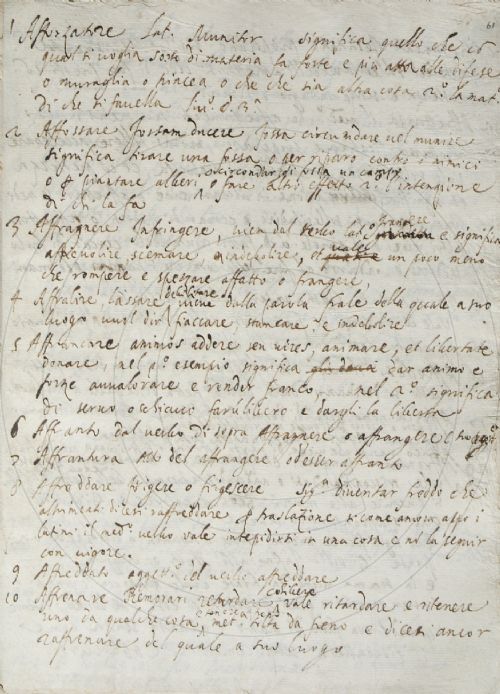 61
1 Afforzatore Lat. Munitor significa quello che cō
qual si voglia sorte di materia fa forte e più atta alle difese
o muraglia o piazza o che che sia altra cosa 2.º la mat.ª
di che si favella
2 Affossare Fossam ducere fossa circumdare vel munire
significa tirare una fossa o per riparo contro i nimici
o circondar di fossa un campo
o p piantare alberi o fare altri effetti 2.º l'intenzione
di chi la fa
3 Affragnere Infringere, vien dal verbo lat.º frangere e significa
affievolire, scemare, indebolire, et vale un poco meno
che rompere e spezzare affatto o frangere,
4 Affralire lassare debilitare viene dalla parola frale della quale a suo
luogo vuol dir fiaccare, stancare e indebolire
5 Affrancare animos addere seu vires, animare, et libertate
donare, nel p.º esempio significa dar animo e
forze avvalorare e render franco, nel 2.º significa
di servo o schiavo farsi libero e dargli la libertà
6 Affranto dal verbo di sopra Affragnere o affrangere
7 Affrantura del affrangere o d'esser affranto
8 Affreddare frigere o frigescere Sig.ª diventar freddo che
altrimenti dicesi raffreddare p traslazione si come ancora appo i
latini il med.º verbo vale intepidirsi in una cosa e nō la seguir
con vigore.
9 Affreddato aggett.º del verbo affreddare
10 Affrenare Remorari retardare cohibere vale ritardare e ritenere
uno da qualche cosa met.ª tolta da freno e dicesi ancor
raffrenare del quale a suo luogo